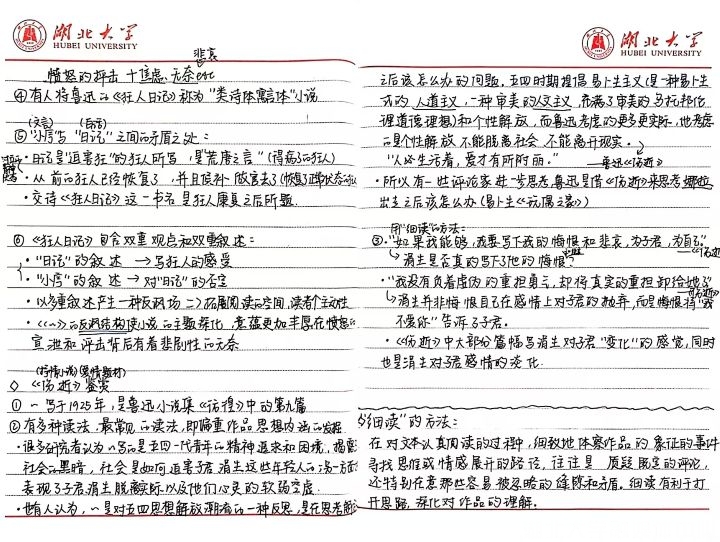 湖北大学
HUBEI UNIVERSITY
悲哀
愤怒的抨击 + 焦虑.无奈etc
④有人将鲁迅的《狂人日记》称为"类诗体寓言体"小说
(文言) (白话)
⑤"小序"与"日记"之间的矛盾之处:
·日记是"迫害狂"的狂人所写,是"荒唐之言"(得病了的狂人)
·从前的狂人已经恢复了,并且候补做官去了(恢复了正常状态的
·交待《狂人日记》这一书名是狂人康复之后所题.
⑥《狂人日记》包含双重观点和双重叙述:
·"日记"的叙述→写狂人的感受
·"小序"的叙述→对"日记"的
·以多重叙述产生一种反讽场 => 拓展阅读的空间,读者主动性
·《~~》的反讽结构使小说的主题深化,意蕴更加丰富在愤怒的
宣泄和抨击背后有着悲剧性的无奈
(抒情小说)(爱情题材)
◇《伤逝》鉴赏
① ~写于1925年,是鲁迅小说集《彷徨》中的第九篇
②有多种读法.最常见的读法,即偏重作品思想内涵的发掘.
·很多研究者认为~写的是五四一代青年的精神追求和困境,揭露
社会的黑暗,社会是如何迫害子君涓生这些年轻人的.另一方面
表现了子君涓生脱离实际以及他们心灵的软弱空虚.
·也有人认为,~是对五四思想解放潮流的一种反思,是在思考解放
湖北大学
HUBEI UNIVERSITY
之后该怎么办的问题.五四时期提倡易卜生主义(是一种易卜生
式的人道主义,一种审美的人文主义,充满了审美的乌托邦化
理道德理想)和个性解放,而鲁迅考虑的更多更实际,他考虑
的是个性解放不能脱离社会,不能离开现实。
"人必生活着,爱才有所附丽。" ——鲁迅《伤逝》
·所以有一些评论家进一步思考鲁迅是借《伤逝》来思考娜拉
出走之后该怎么办(易卜生《玩偶之家》)
用"细读"的方法:
③·"如果我能够,我要写下我的悔恨和悲哀,为子君,为自己." ——《伤逝》
涓生是否真的写下了他的悔恨?
·"我没有负着虚伪的重担的勇气,却将真实的重担卸给她了" ——《伤逝》
涓生并非悔恨自己在感情上对子君的抛弃,而是悔恨将"我
不爱你"告诉了子君.
·《伤逝》中大部分篇幅写涓生对子君"变化"的感觉,同时
也是涓生对子君感情的变化.
"细读"的方法:
在对文本认真阅读的过程中,细致地体察作品的象征的事件
寻找思维或情感展开的路径,往往是质疑既定的评论,
还特别在意那些容易被忽略的缝隙和矛盾。细读有利于打
开思路,深化对作品的理解.